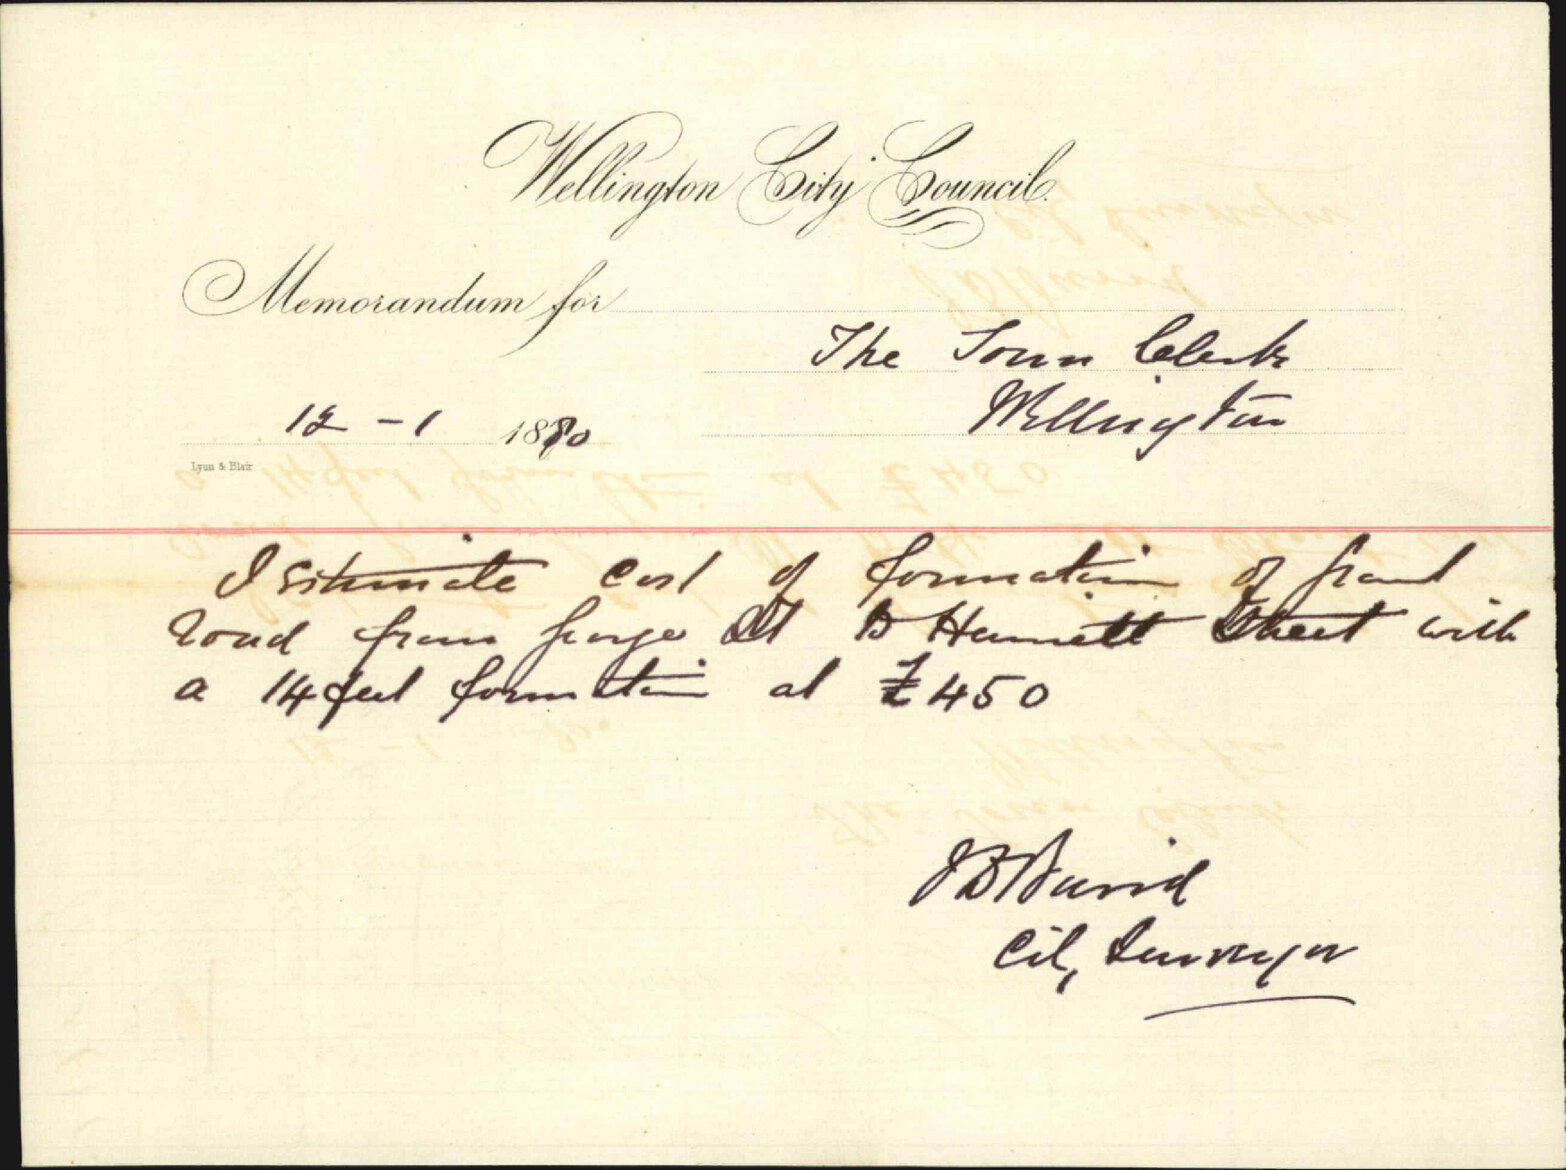 Wellington City Council.
Memorandum for
The Town Clerk
Wellington
12 - 1 1880
Lyon & Blair
I Estimate Cost of formation of Grant
Road from George St to Harriett Street with
a 14 feet formation at £450
J D Baird
City Surveyor